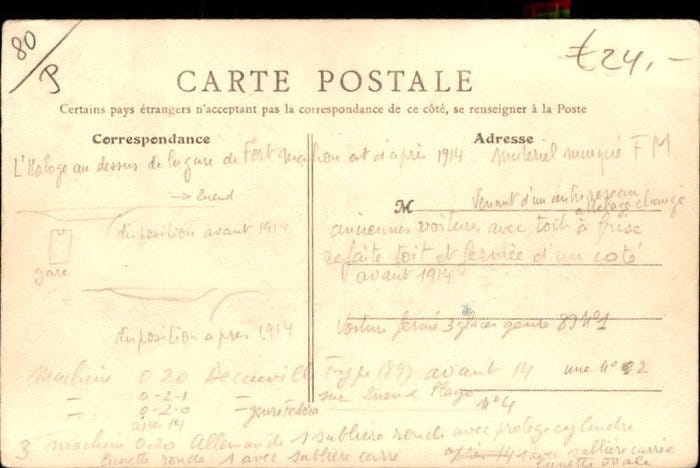 80
P
€24,-
CARTE POSTALE
Certains pays étrangers n'acceptant pas la correspondance de ce côté, se renseigner à la Poste
Correspondance
Adresse
L'Horloge au dessus de la gare de Fort Mahon est d'après 1914
matériel marqué FM
→ 2uend
Venant d'un autre réseau
attelage changé
M
disposition avant 1914
gare
anciennes voitures avec toit à frise
refaite toit et fermée d'un coté
avant 1914
disposition après 1914
Voiture fermé 3 glaces genre 89 N°1
Machine 0 20 Decauville Type 1897 avant 14 une N° 2
" 0-2-1 sur 2uend Plage
" 0-2-0 " genre Fedora N°4
après 14
3 machine 0-20 Allemande 1 sablière ronde avec protège cylindre
lunette ronde 1 avec sablière carré
après 14 1 avec sablière carrée
lunette ovale